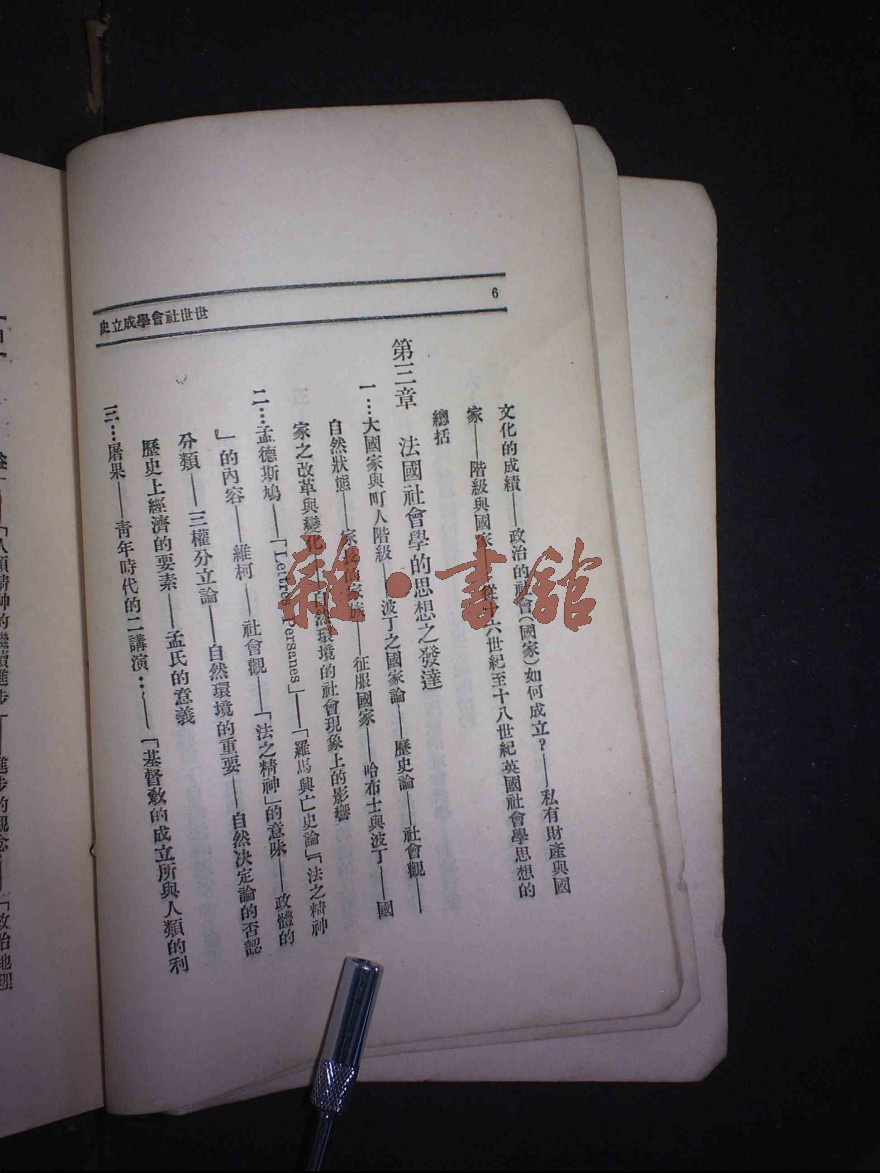 世世社會學成立史
6
文化的成績——政治的社會(國家)如何成立?——私有財產與國
家——階級與國家——從十六世紀至十八世紀英國社會學思想的
總括
第三章 法國社會學的思想之發達
一…大國家與町人階級——波丁之國家論——歷史論——社會觀——
自然狀態——家長的家族——征服國家——哈布士與波丁——國
家之改革與變化——自然環境的社會現象上的影響
二…孟德斯鳩——「Lettres Persanes」——「羅馬興亡史論」『法之精神
』的內容——維柯——社會觀——「法之精神」的意味——政體的
分類——三權分立論——自然環境的重要——自然決定論的否認
歷史上經濟的要素——孟氏的意義
三…屠果——青年時代的二講演…——「基督教的成立所與人類的利
「人類精神的繼續進步」——進步的觀念——「政治地理
雜·書館